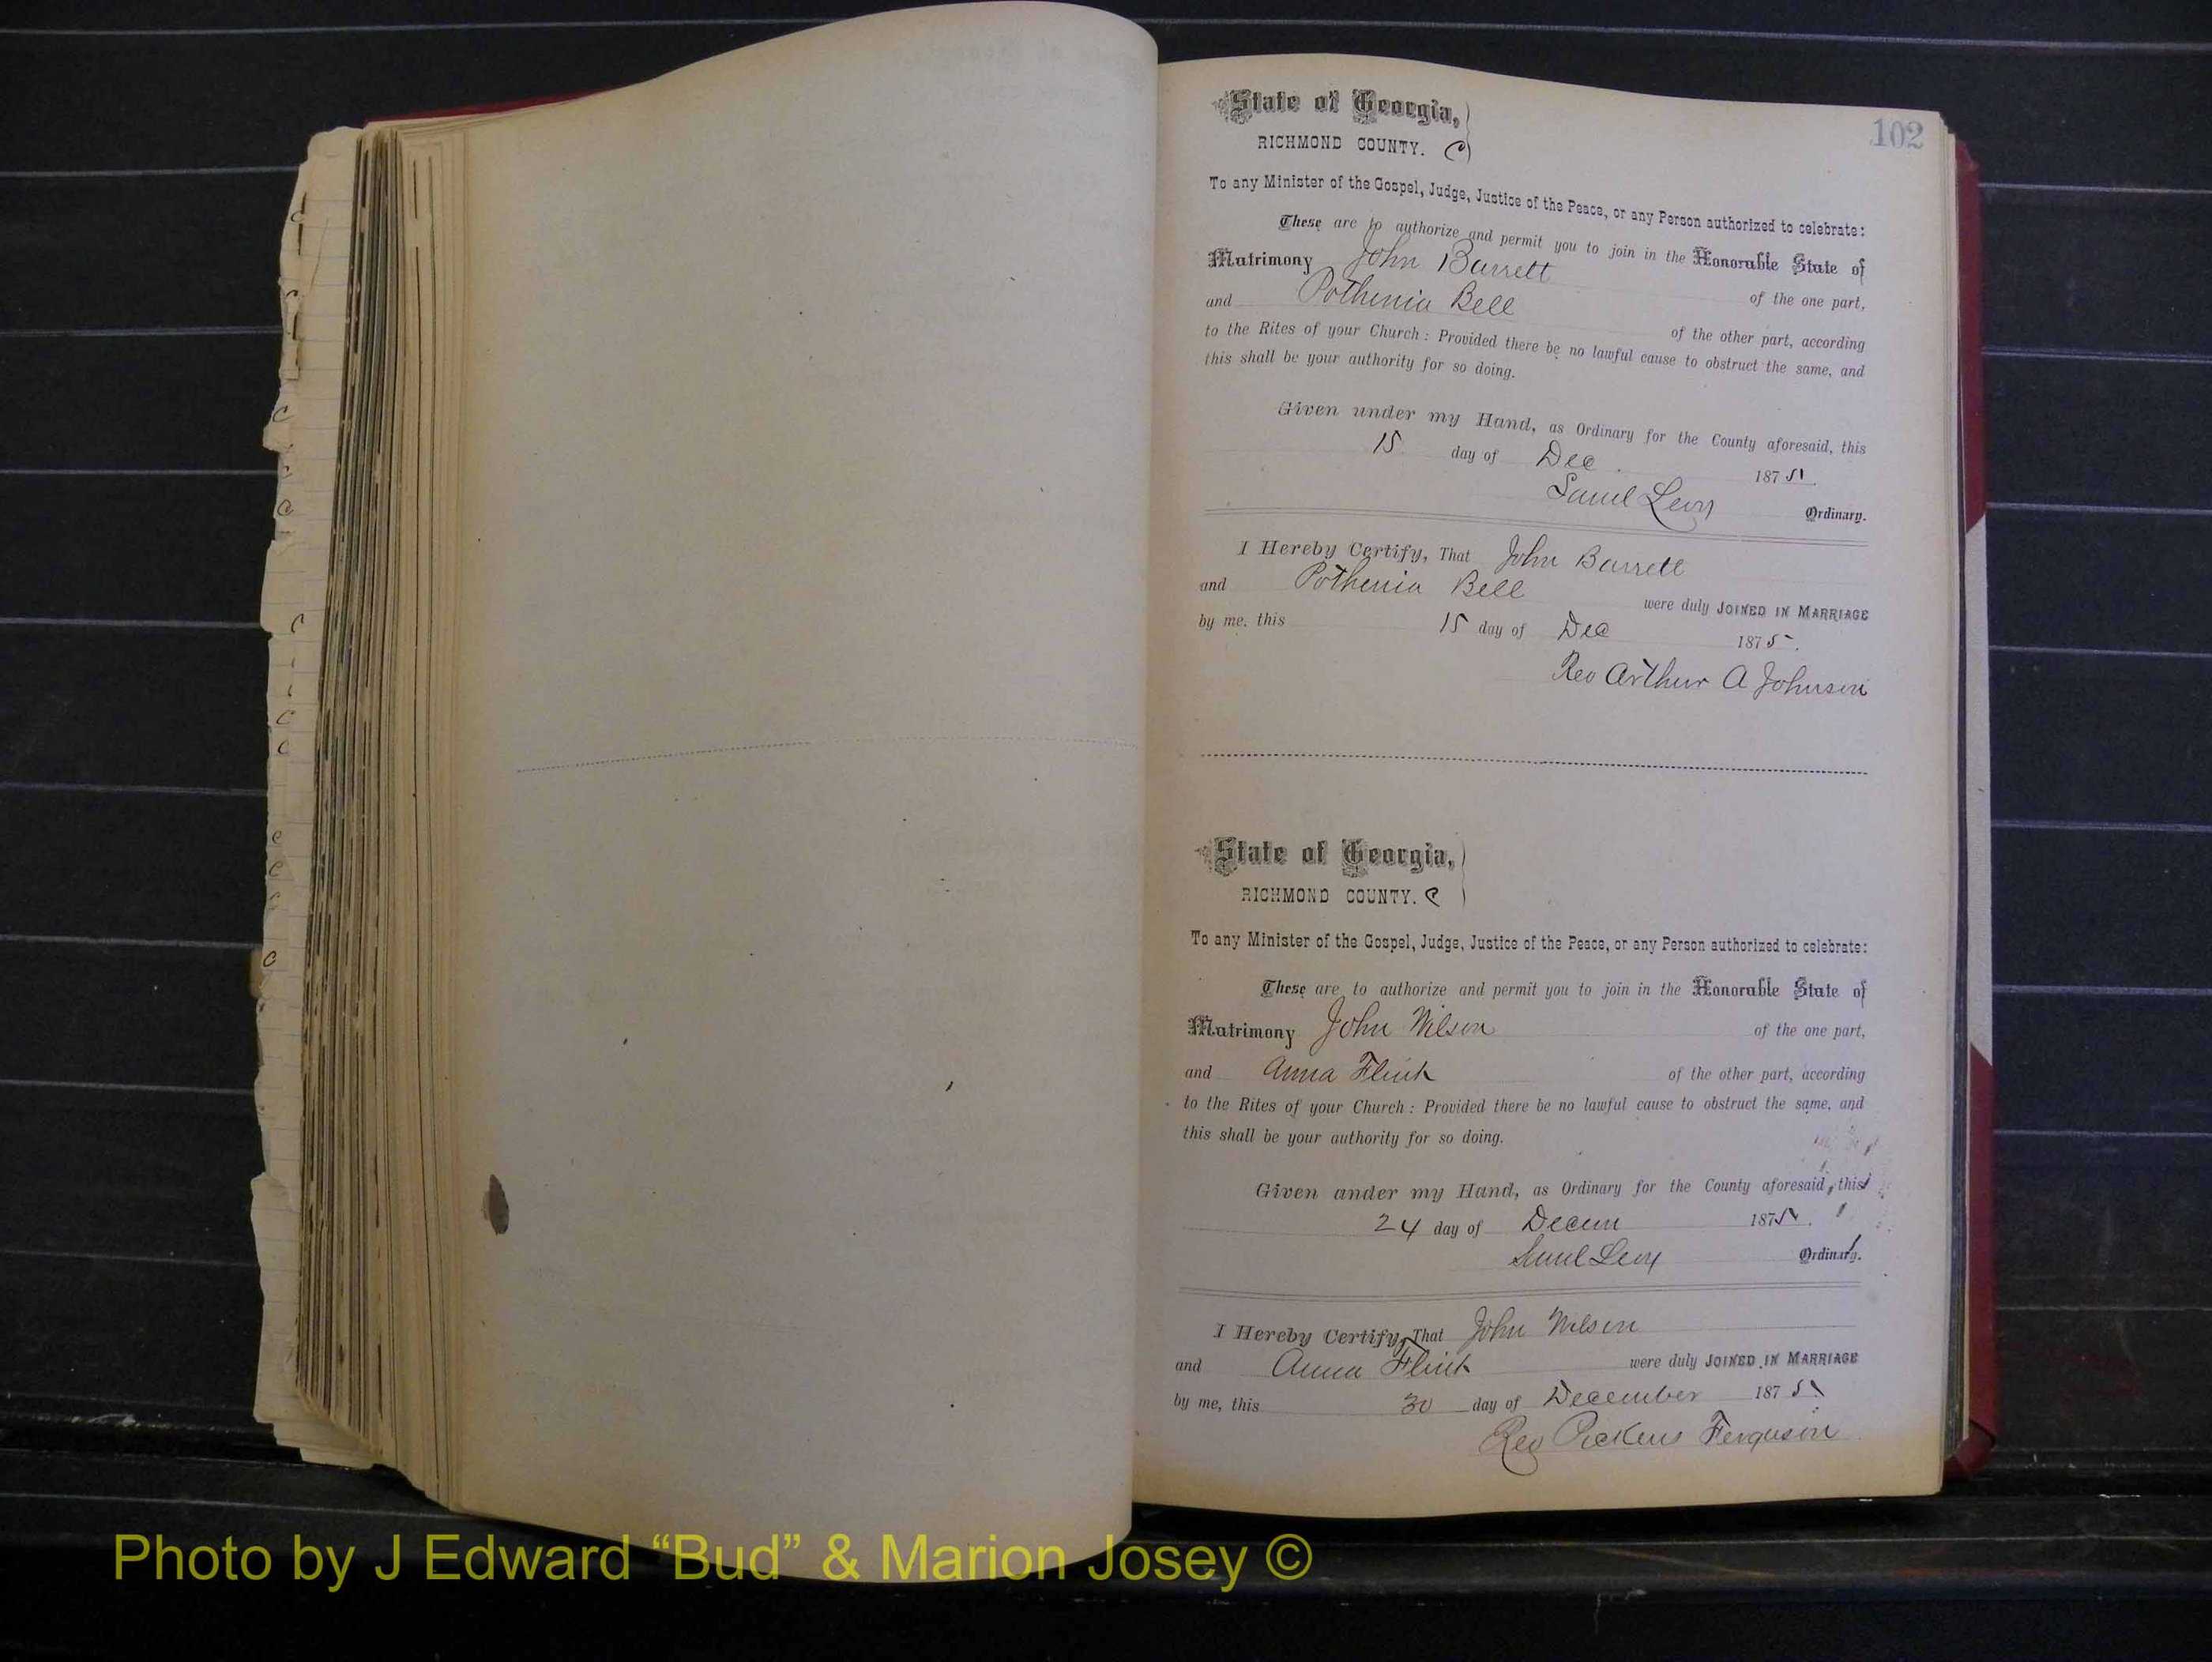 102
State of Georgia,
RICHMOND COUNTY. C
To any Minister of the Gospel, Judge, Justice of the Peace, or any Person authorized to celebrate:
These are to authorize and permit you to join in the Honorable State of
Matrimony John Barrett of the one part,
and Pothenia Bell of the other part, according
to the Rites of your Church: Provided there be no lawful cause to obstruct the same, and
this shall be your authority for so doing.
Given under my Hand, as Ordinary for the County aforesaid, this
15 day of Dec. 1875.
Saml Levy Ordinary.
I Hereby Certify, That John Barrett
and Pothenia Bell were duly JOINED IN MARRIAGE
by me, this 15 day of Dec 1875.
Rev Arthur A Johnson
State of Georgia,
RICHMOND COUNTY. C
To any Minister of the Gospel, Judge, Justice of the Peace, or any Person authorized to celebrate:
These are to authorize and permit you to join in the Honorable State of
Matrimony John Wilson of the one part,
and Anna Flink of the other part, according
to the Rites of your Church: Provided there be no lawful cause to obstruct the same, and
this shall be your authority for so doing.
Given under my Hand, as Ordinary for the County aforesaid, this
24 day of Decem 1875.
Saml Levy Ordinary.
I Hereby Certify, That John Wilson
and Anna Flink were duly JOINED IN MARRIAGE
by me, this 30 day of December 1875
Rev Pickens Ferguson
Photo by J Edward “Bud” & Marion Josey ©